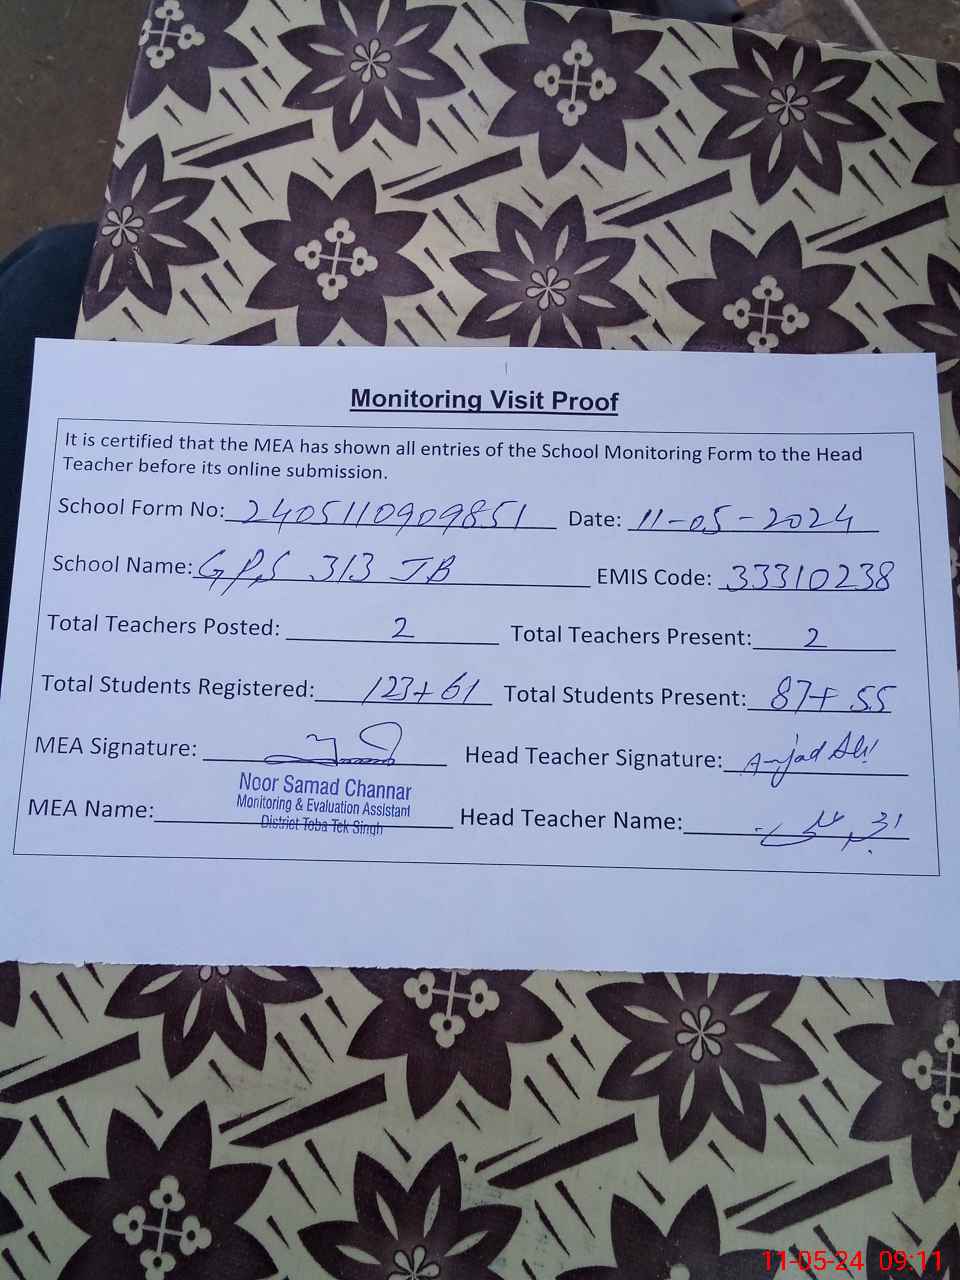 Monitoring Visit Proof
It is certified that the MEA has shown all entries of the School Monitoring Form to the Head
Teacher before its online submission.
School Form No: 2405110909851 Date: 11-05-2024
School Name: GPS 313 JB EMIS Code: 33310238
Total Teachers Posted: 2 Total Teachers Present: 2
Total Students Registered: 123+61 Total Students Present: 87+55
MEA Signature: Head Teacher Signature: Amjad Ali
Noor Samad Channar
Monitoring & Evaluation Assistant
District Toba Tek Singh
MEA Name: Head Teacher Name:
11-05-24 09:11